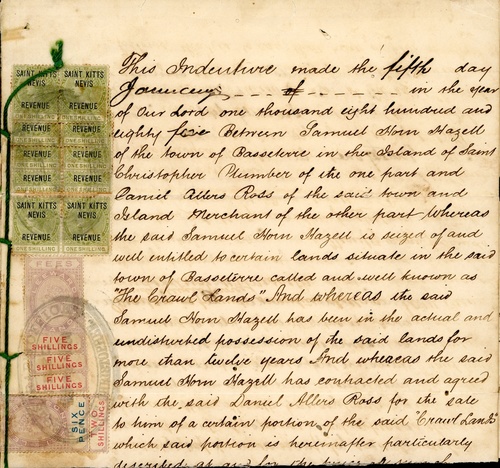 SAINT KITTS SAINT KITTS
NEVIS NEVIS
REVENUE REVENUE
ONE SHILLING ONE SHILLING
REVENUE REVENUE
ONE SHILLING ONE SHILLING
REVENUE REVENUE
ONE SHILLING ONE SHILLING
SAINT KITTS SAINT KITTS
NEVIS NEVIS
REVENUE REVENUE
ONE SHILLING ONE SHILLING
FIVE
SHILLINGS
FIVE
SHILLINGS
FIVE
SHILLINGS
SIX
PENCE
TWO
SHILLINGS
This Indenture made the fifth day
January of in the year
of Our Lord one thousand eight hundred and
eighty five Between Samuel Horn Hazell
of the town of Basseterre in the Island of Saint
Christopher Plumber of the one part and
Daniel Allers Ross of the said town and
Island Merchant of the other part Whereas
the said Samuel Horn Hazell is seized of and
well entitled to certain lands situate in the said
town of Basseterre called and well known as
"The Crawl Lands" And whereas the said
Samuel Horn Hazell has been in the actual and
undisturbed possession of the said lands for
more than twelve years And whereas the said
Samuel Horn Hazell has contracted and agreed
with the said Daniel Allers Ross for the sale
to him of a certain portion of the said "Crawl Lands"
which said portion is hereinafter particularly
described at and for the